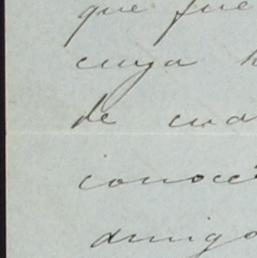 que fue
cuya h
de cua
conoce
amigo